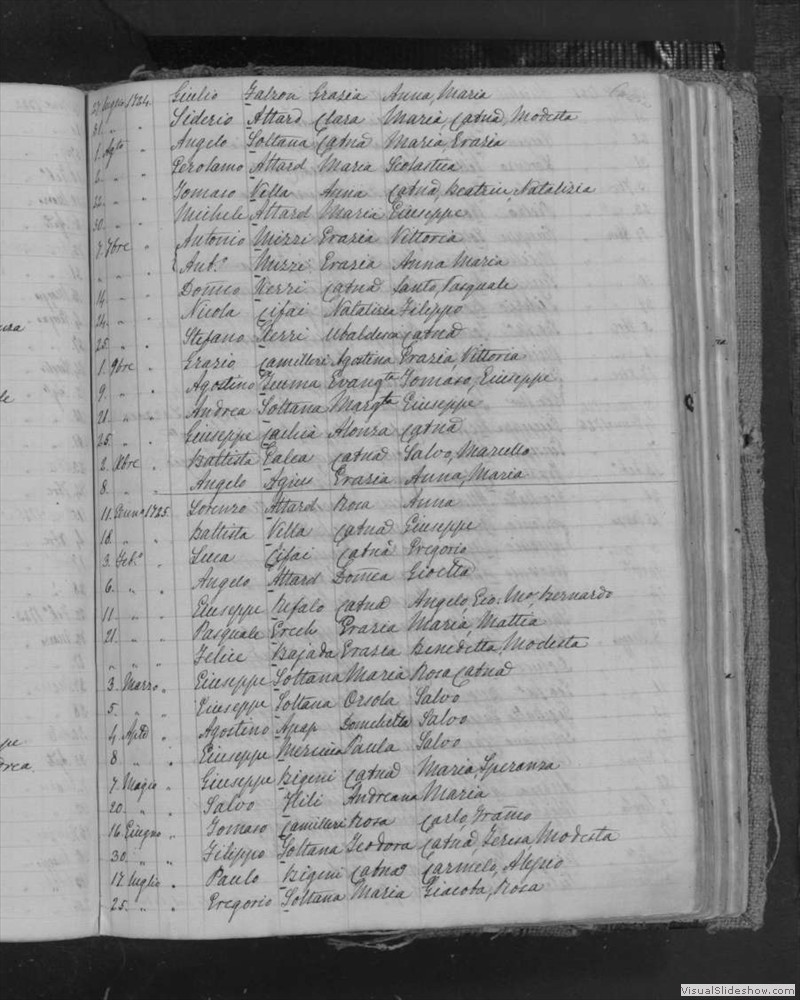 27 lugo 1724. Giulio Galzon Grazia Anna, Maria
31. " " Siderio Attard Clara Maria, Catnā, Modesta
1. Agto " Angelo Soltana Catnā Maria Grazia
2. " " Gerolamo Attard Maria Scolastica
22. " " Tomaso Vella Anna Catnā, Beatrice, Natalizia
30. " " Michele Attard Maria Giuseppe
7. 7bre " Antonio Mizzi Grazia Vittoria
" " " Anto Mizzi Grazia Anna Maria
14. " " Domco Xerri Catnā Santo, Pasquale
24. " " Nicola Cifai Natalizia Filippo
25. " " Stefano Xerri Ubaldesca Catnā
1. 9bre " Grazio Camilleri Agostina Grazia, Vittoria
9. " " Agostino Zumma Evangta Tomaso, Giuseppe
21. " " Andrea Soltana Margta Giuseppe
25. " " Giuseppe Cachia Alonza Catnā
2. Xbre " Battista Galea Catnā Salvo, Marcello
8. " " Angelo Agius Grazia Anna, Maria
11. Genno 1725. Lorenzo Attard Rosa Anna
18. " " Battista Vella Catnā Giuseppe
3. Febo " Luca Cifai Catnā Gregorio
6. " " Angelo Attard Domca
11. " " Giuseppe Bufalo Catnā Angelo, Gio: Mā, Bernardo
21. " " Pasquale Grech Grazia Maria, Mattia
" " " Felice Bajada Grazia Benedetta, Modesta
3. Marzo " Giuseppe Soltana Maria Rosa Catnā
5. " " Giuseppe Soltana Orsola Salvo
4. Aple " Agostino Apap Domchella Salvo
8 " " Giuseppe Mercieca Paula Salvo
7. Magio " Giuseppe Bigeni Catnā Maria, Speranza
20. " " Salvo Hili Andreana Maria
16. Giugno " Tomaso Camilleri Rosa Carlo, Franco
30. " " Filippo Soltana Teodora Catnā, Teresa, Modesta
17. luglio " Paulo Bigeni Catnā Carmelo, Alesso
25. " " Gregorio Soltana Maria Giacoba, Rosa
VisualSlideshow.com